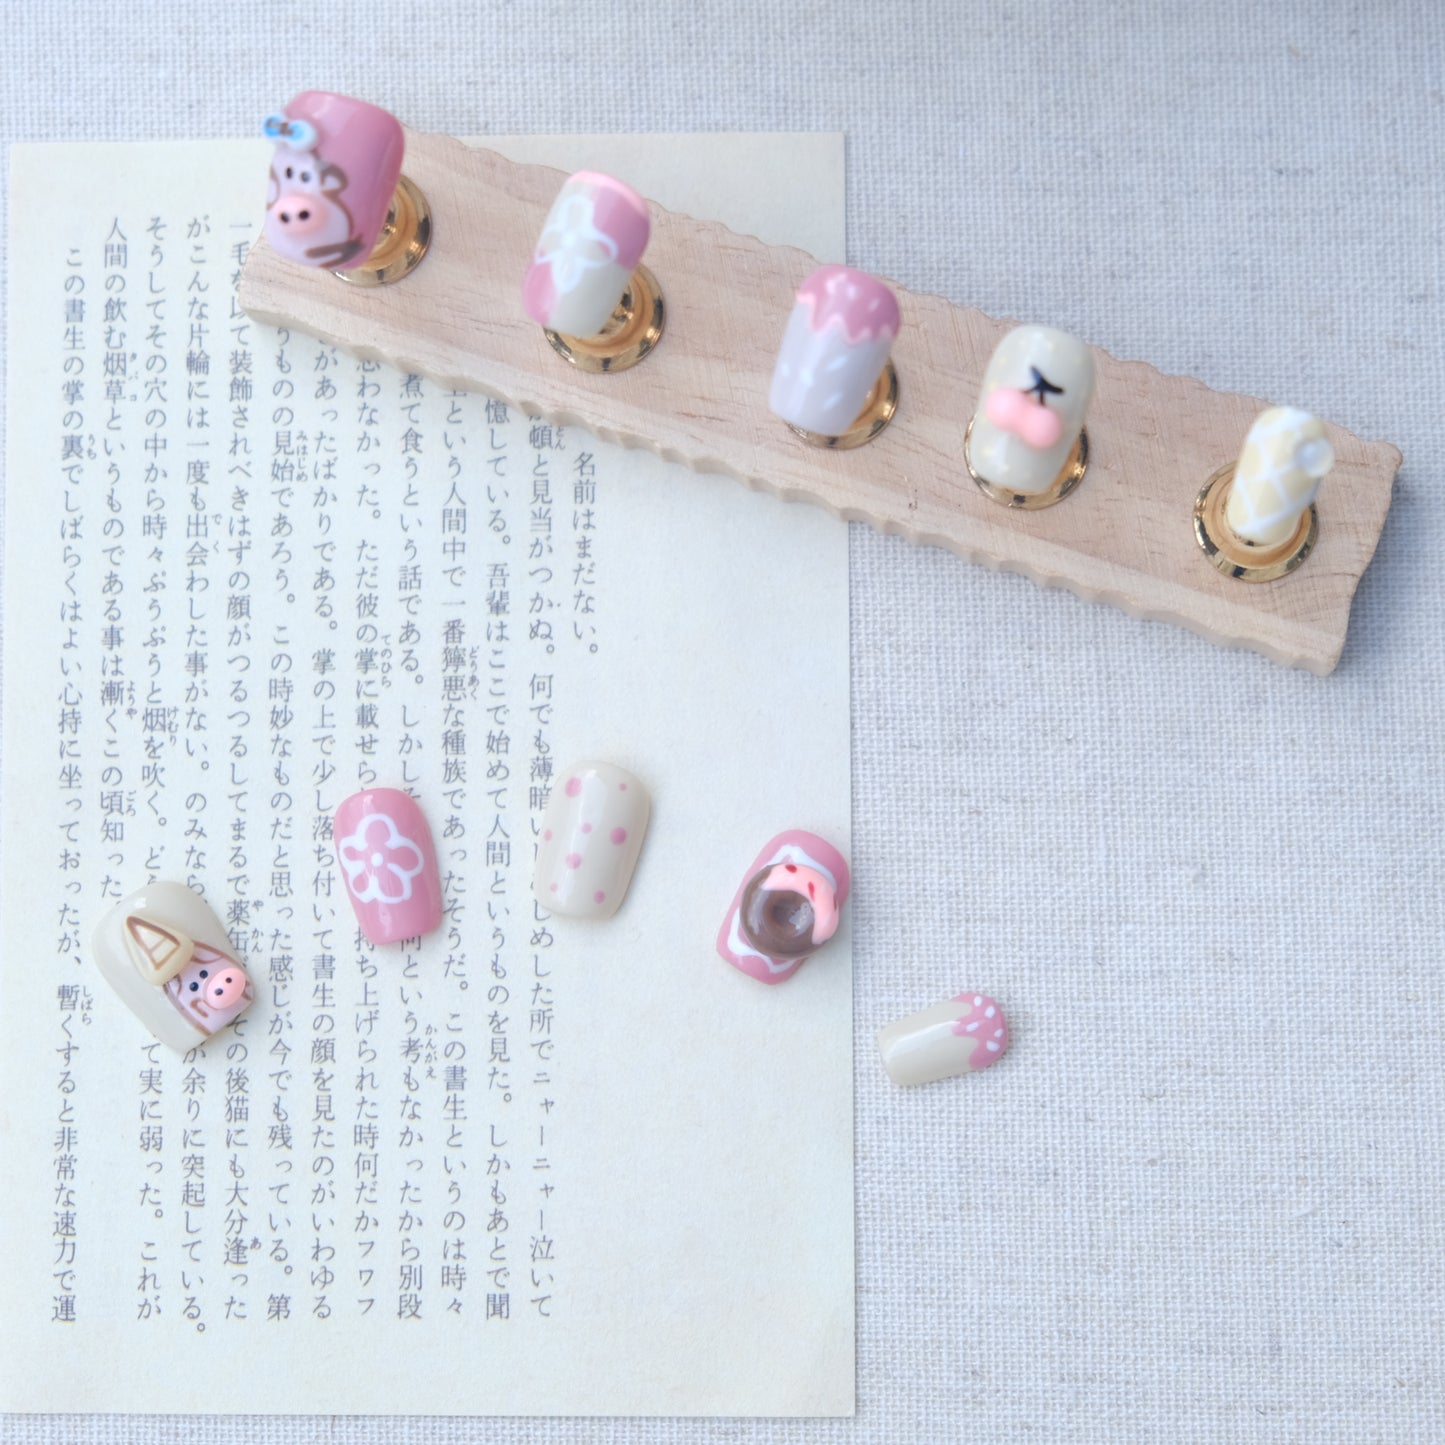 名前はまだない。
頓と見当がつかぬ。何でも薄暗いじめした所でニャーニャー泣いて
憶している。吾輩はここで始めて人間というものを見た。しかもあとで聞
という人間中で一番獰悪な種族であったそうだ。この書生というのは時々
煮て食うという話である。しかし何という考もなかったから別段
思わなかった。ただ彼の掌に載せら持ち上げられた時何だかフワフ
があったばかりである。掌の上で少し落ち付いて書生の顔を見たのがいわゆる
うものの見始であろう。この時妙なものだと思った感じが今でも残っている。第
一毛を以て装飾されべきはずの顔がつるつるしてまるで薬缶だ。その後猫にも大分逢った
がこんな片輪には一度も出会わした事がない。のみなら余りに突起している。
そうしてその穴の中から時々ぷうぷうと烟を吹く。どうて実に弱った。これが
人間の飲む烟草というものである事は漸くこの頃知った
この書生の掌の裏でしばらくはよい心持に坐っておったが、暫くすると非常な速力で運